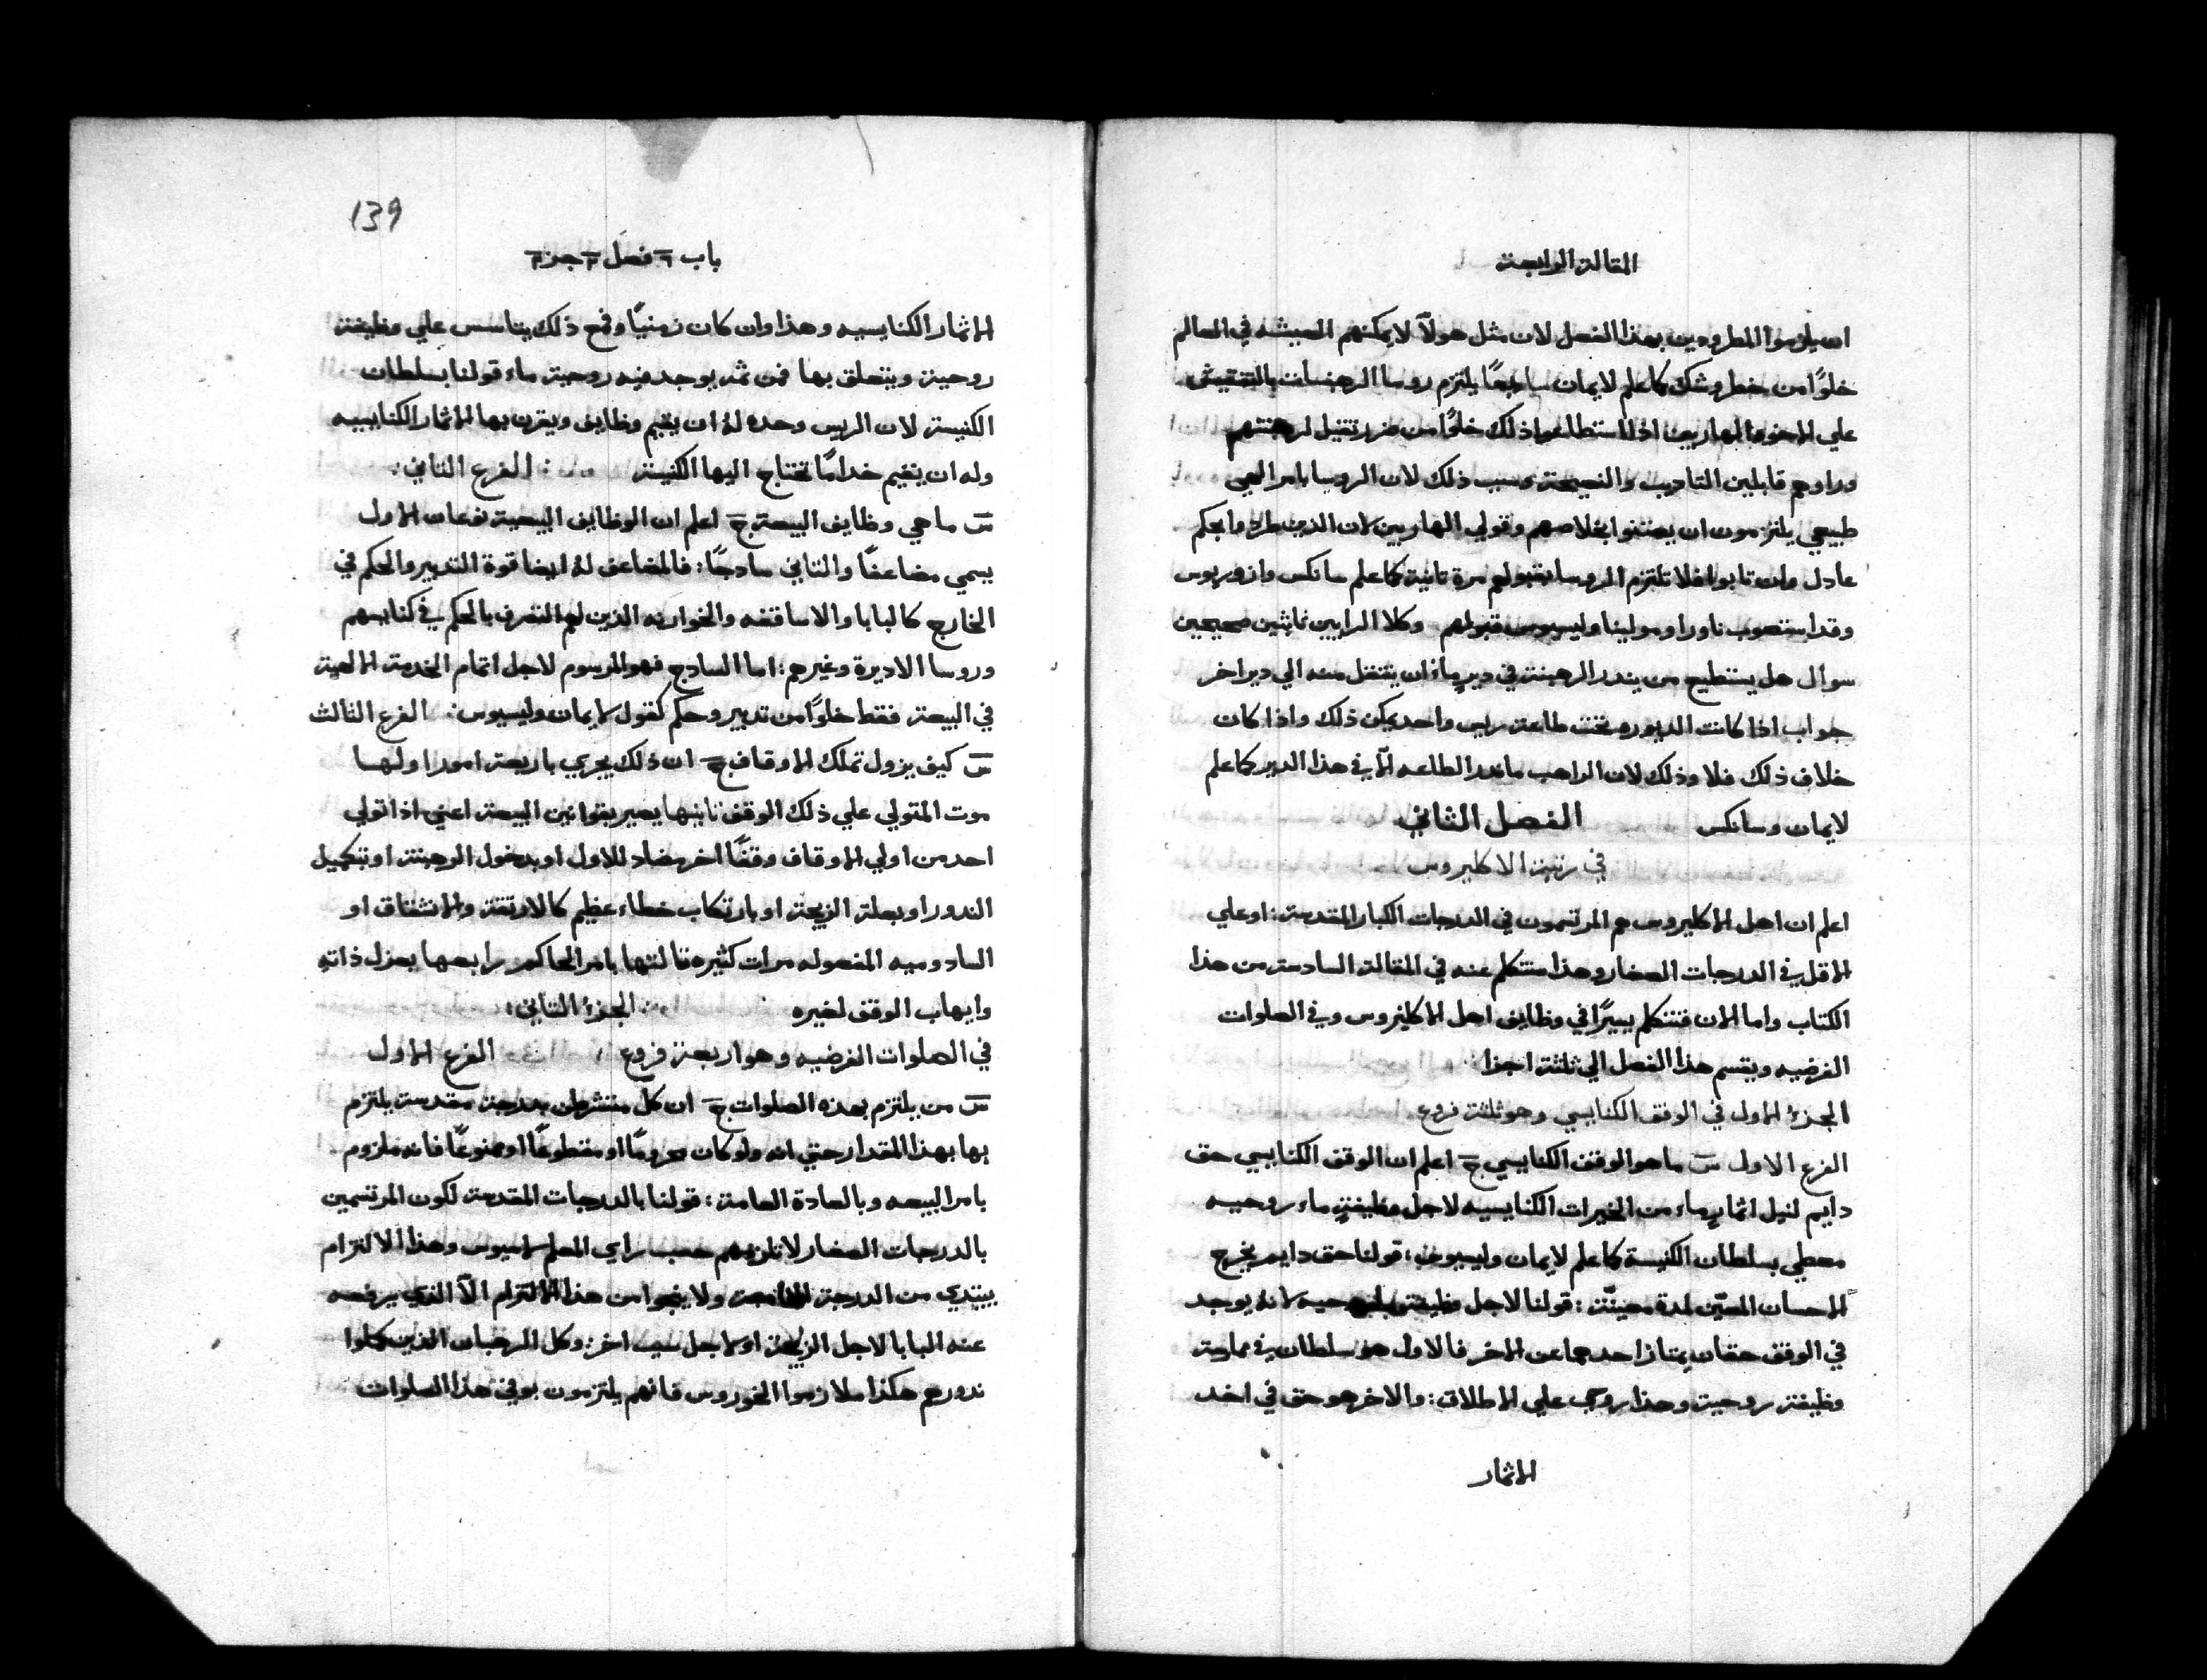 المقالة الرابعة
ان يلوموا المطرودين بهذا الفصل لان مثل هولآ لا يمكنهم المعيشه في العالم
خلوًا من خطر وشك كما علم لايمان سابعًا يلتزم روسا الرهبنات بالتفتيش
علي الاخوة الهاربين اذا استطاعوا ذلك خلوًا من ضرر ثقيل لرهبنتهم
وراوهم قابلين التاديب والنصيحة وسبب ذلك لان الروسا بامر الهي
طبيعي يلتزمون ان يعتنوا بخلاصهم وقولي الهاربين لان الذين طردوا بحكم
عادل وان تابوا فلا تلتزم الروسا بقبولهم مرة ثانية كما علم سانكس وازوريوس
وقد استصوب ناورا ومولينا وليسيوس قبولهم وكلا الرايين ثابتين صحيحين
سوال هل يستطيع من يندر الرهبنة في ديرٍ ماء ان ينتقل منه الي دير اخر
جواب اذا كانت الديوره تحت طاعة ريس واحد يمكن ذلك واذا كان
خلاف ذلك فلا وذلك لان الراهب ما ندر الطاعه الّا في هذا الدير كما علم
لايمان وسانكس الفصل الثاني
في رتبة الاكليروس
اعلم ان اهل الاكليروس هم المرتسمون في الدرجات الكبار المقدسة: او علي
الاقل في الدرجات الصغار وهذا سنتكلم عنه في المقالة السادسة من هذا
الكتاب واما الان فنتكلم يسيرًا في وظايف اهل الاكليروس وفي الصلوات
الفرضيه ويقسم هذا الفصل الي ثلثة اجزا
الجزؤ الاول في الوقف الكنايسي وهو ثلثة فروع
الفرع الاول س ما هو الوقف الكنايسي ج اعلم ان الوقف الكنايسي حق
دايم لنيل اثمارٍ ماء من الخيرات الكنايسيه لاجل وظيفةٍ ماء روحيه
معطي بسلطان الكنيسة كما علم لايمان وليسيوس: قولنا حق دايم يخرج
الاحسان المعيّن لمدة معينّة: قولنا لاجل وظيفة روحيه لانه يوجد
في الوقف حقان يمتاز احدهما عن الاخر فالاول هو سلطان في ممارسة
وظيفة روحية وهذا روحي علي الاطلاق: والاخر هو حق في اخد
الاثمار
139
باب فصل جزء
الاثمار الكنايسيه وهذا وان كان زمنيًا ومع ذلك يتاسس علي وظيفة
روحية ويتعلق بها فمن ثم يوجد فيه روحية ماء قولنا بسلطان
الكنيسة لان الريس وحده لهُ ان يقيم وظايف ويقرن بها الاثمار الكنايسيه
وله ان يقيم خدامًا تحتاج اليها الكنيسة : الفرع الثاني
س ما هي وظايف البيعة ج اعلم ان الوظايف البيعية نوعان الاول
يسمي مضاعفًا والثاني سادجًا: فالمضاعف لهُ ايضا قوة التدبير والحكم في
الخارج كالبابا والاساقفه والخوارنه الذين لهم التصرف بالحكم في كنايسهم
وروسا الاديرة وغيرهم: اما السادج فهو المرسوم لاجل اتمام الخدمة الالهية
في البيعة فقط خلوًا من تدبير وحكم كقول لايمان وليسيوس: الفرع الثالث
س كيف يزول تملك الاوقاف ج ان ذلك يجري باربعة امور اولها
موت المتولي علي ذلك الوقف ثانيها يصير بقوانين البيعة اعني اذا تولي
احد من اولي الاوقاف وقفًا اخر مضاد للاول او بدخول الرهبنة او بتكميل
الندور او بعلة الزيجة او بارتكاب خطاء عظيم كالارتقة والانشقاق او
السادوميه المفعوله مرات كثيره ثالثها بامر الحاكم رابعها بعزل ذاته
وايهاب الوقف لغيره الجزؤ الثاني:
في الصلوات الفرضيه وهو اربعة فروع الفرع الاول
س من يلتزم بهذه الصلوات ج ان كل متشرطن بدرجة مقدسة يلتزم
بها بهذا المقدار حتي انه ولو كان محرومًا او مقطوعًا او ممنوعًا فانه ملزوم
بامر البيعه وبالعادة العامة: قولنا بالدرجات المقدسة لكون المرتسمين
بالدرجات الصغار لا تلزمهم حسب راي المعلم ليسيوس وهذا الالتزام
يبتدي من الدرجة ولا ينجوا من هذا الالتزام الّا الذي يرفعه
عنه البابا لاجل الزيجة او لاجل سبب اخر: وكل الرهبان الذين كملوا
ندورهم هكذا ملازموا الخوروس فانهم يلتزمون بوفي هذا الصلوات